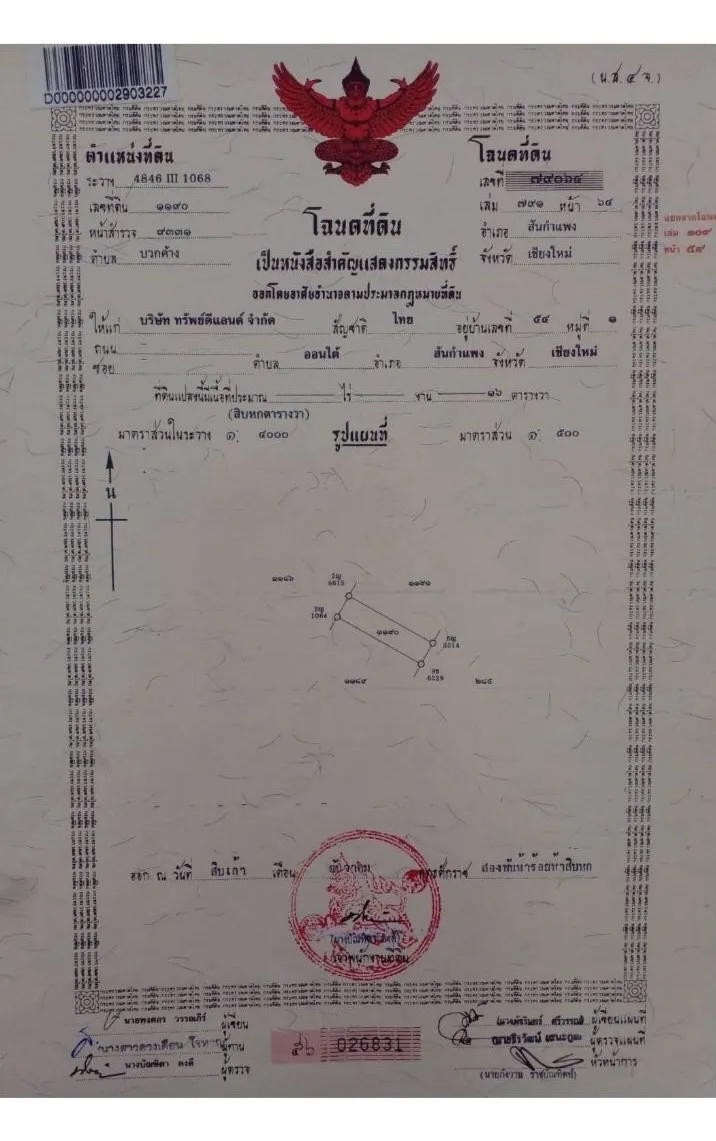 D000000002903227
(น.ส. ๔ จ.)
ตำแหน่งที่ดิน
ระวาง 4846 III 1068
เลขที่ดิน ๑๑๙๐
หน้าสำรวจ ๙๓๓๑
ตำบล บวกค้าง
โฉนดที่ดิน
เลขที่ ๗๙๐๖๔
เล่ม ๗๙๑ หน้า ๖๔
อำเภอ สันกำแพง
จังหวัด เชียงใหม่
แยกจากโฉนด
เล่ม ๑๐๙
หน้า ๕๙
โฉนดที่ดิน
เป็นหนังสือสำคัญแสดงกรรมสิทธิ์
ออกโดยอาศัยอำนาจตามประมวลกฎหมายที่ดิน
ให้แก่ บริษัท ทรัพย์ดีแลนด์ จำกัด สัญชาติ ไทย อยู่บ้านเลขที่ ๕๔ หมู่ที่ ๑
ถนน
ซอย ตำบล ออนใต้ อำเภอ สันกำแพง จังหวัด เชียงใหม่
ที่ดินแปลงนี้มีเนื้อที่ประมาณ ไร่ งาน ๑๖ ตารางวา
(สิบหกตารางวา)
มาตราส่วนในระวาง ๑: ๔๐๐๐ รูปแผนที่ มาตราส่วน ๑: ๕๐๐
น
๑๑๔๖
5615
๑๑๙๑
1064
๑๑๙๐
3314
6329
๑๑๘๙
๒๔๕
ออก ณ วันที่ สิบเก้า เดือน พุทธศักราช สองพันห้าร้อยห้าสิบหก
เจ้าพนักงานที่ดิน
ผู้เขียน
ผู้ทาน
นางบัณฑิตา คงดี ผู้ตรวจ
๕๖ 026831
ผู้เขียนแผนที่
ผู้ตรวจแผนที่
หัวหน้าการ